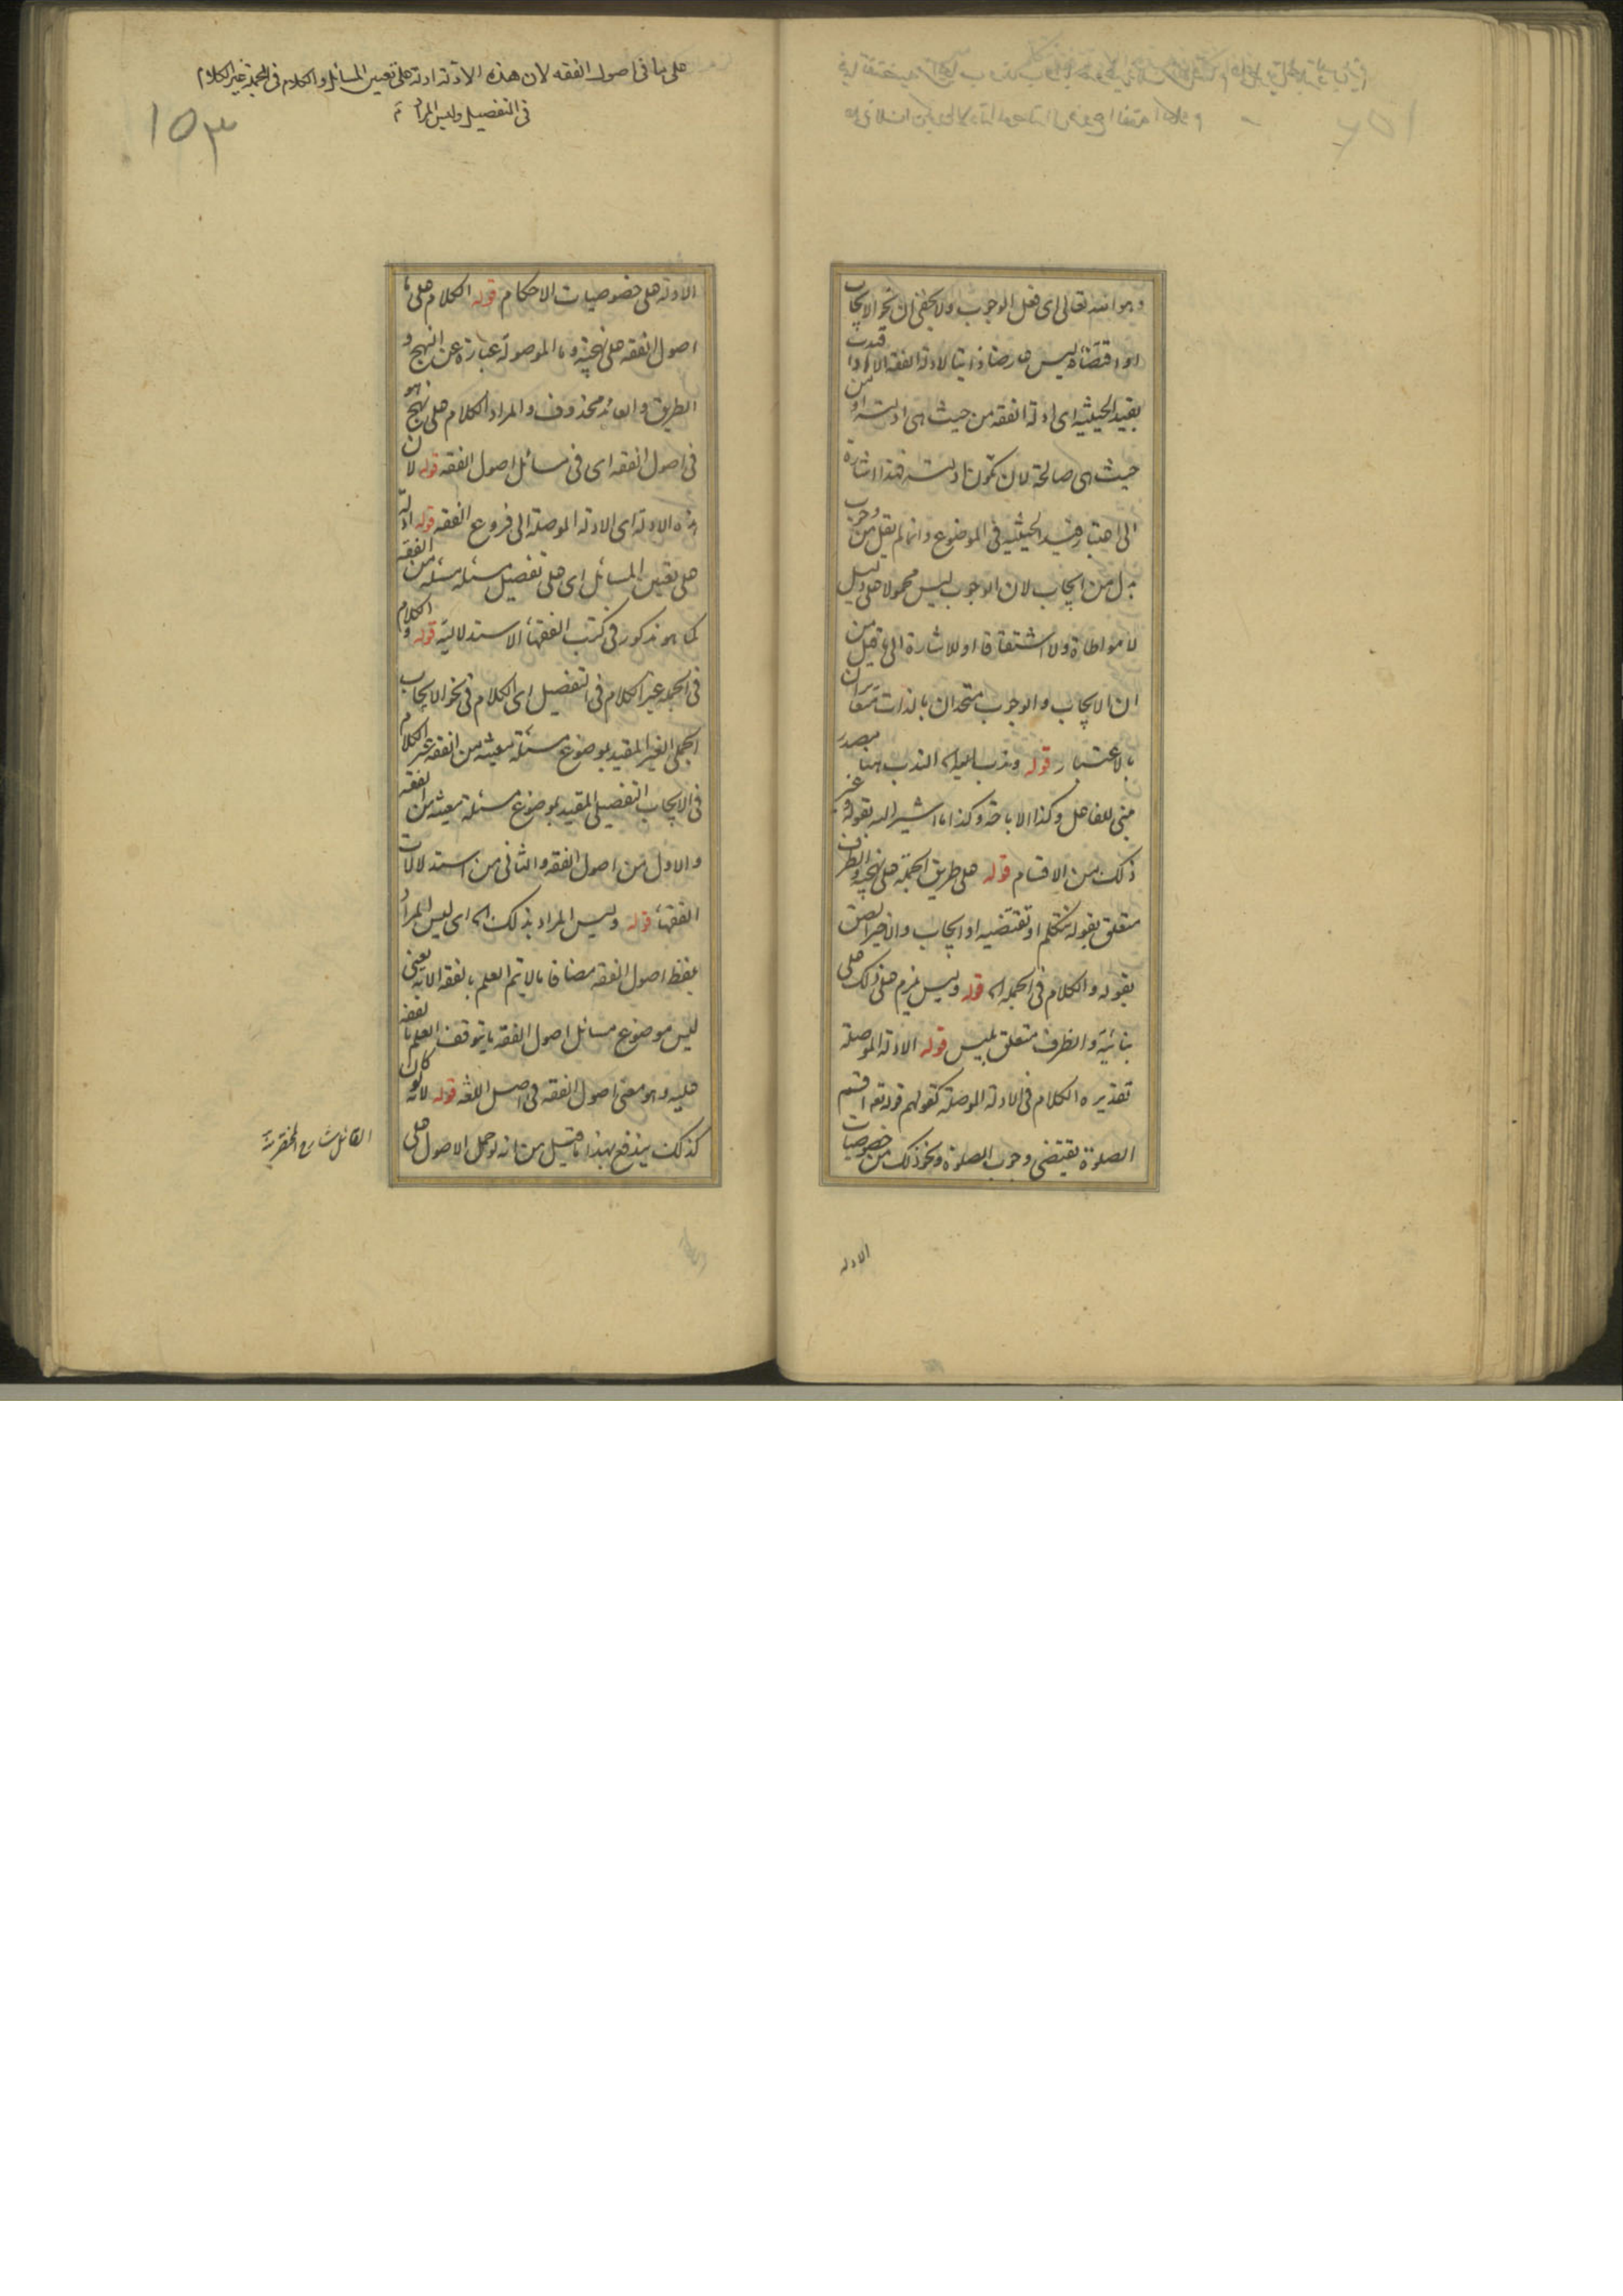 وهو الله تعالى اى فعل الوجوب ولا يخفى ان نحو الايجاب
او اقتضائه ليس عارضا ذاتيا لادلة الفقه الا اذا قيدت
بقيد الحيثية اى ادلة الفقه من حيث هى ادلته او من
حيث هى صالحة لان تكون ادلته فهذا اشارة
الى اعتبار قيد الحيثية فى الموضوع وانما لم يقل من وجوب
بدل من ايجاب لان الوجوب ليس محمولا على دليل
لا مواطاة ولا اشتقاقا او للاشارة الى ما قيل من
ان الايجاب والوجوب متحدان بالذات متغايران
بالاعتبار قوله وندب الندب ههنا مصدر
مبنى للفاعل وكذا الاباحة وكذا ما اشير اليه بقوله وغير
ذلك من الاقسام قوله على طريق الجملة على نهجه والظرف
متعلق بقوله نتكلم او تقتضيه او ايجاب والاخير الصق
بقوله والكلام فى الجملة اه قوله وليس يلزم على ذلك على
بنائية والظرف متعلق بليس قوله الادلة الموصلة
تقديره الكلام فى الادلة الموصلة كقولهم قوله تع اقيم
الصلوة يقتضى وجوب الصلوة ونحو ذلك من خصوصيات
الادلة
على ما فى اصول الفقه لان هذه الادلة ادلة على تعيين المسائل والكلام فى الجملة غير الكلام
فى التفصيل وليس المراد
١٥٣
الادلة على خصوصيات الاحكام قوله الكلام على ما
اصول الفقه على نهجه وما الموصولة عبارة عن النهج و
الطريق والعائد محذوف والمراد الكلام على نهج هو
فى اصول الفقه اى فى مسائل اصول الفقه قوله لان
هذه الادلة اى الادلة الموصلة الى فروع الفقه قوله ادلة
على تعيين المسائل اى على تفصيل مسئلة مسئلة من الفقه
كما هو مذكور فى كتب الفقهاء الاستدلالية قوله والكلام
فى الجملة غير الكلام فى التفصيل اى الكلام فى نحو الايجاب
الجملى الغير المقيد بموضوع مسئلة معينة من الفقه غير الكلام
فى الايجاب التفصيلى المقيد بموضوع مسئلة معينة من الفقه
والاول من اصول الفقه والثانى من استدلالات
الفقهاء قوله وليس المراد بذلك اه اى ليس المراد
بلفظ اصول الفقه مضافا ما لا يتم العلم بالفقه الا به يعنى
ليس موضوع مسائل اصول الفقه ما يتوقف العلم بالفقه
عليه وهو معنى اصول الفقه فى اصل اللغة قوله لانه لو كان
كذلك يندفع بهذا ما قيل من انه لو حمل الاصول على
القائل شارح